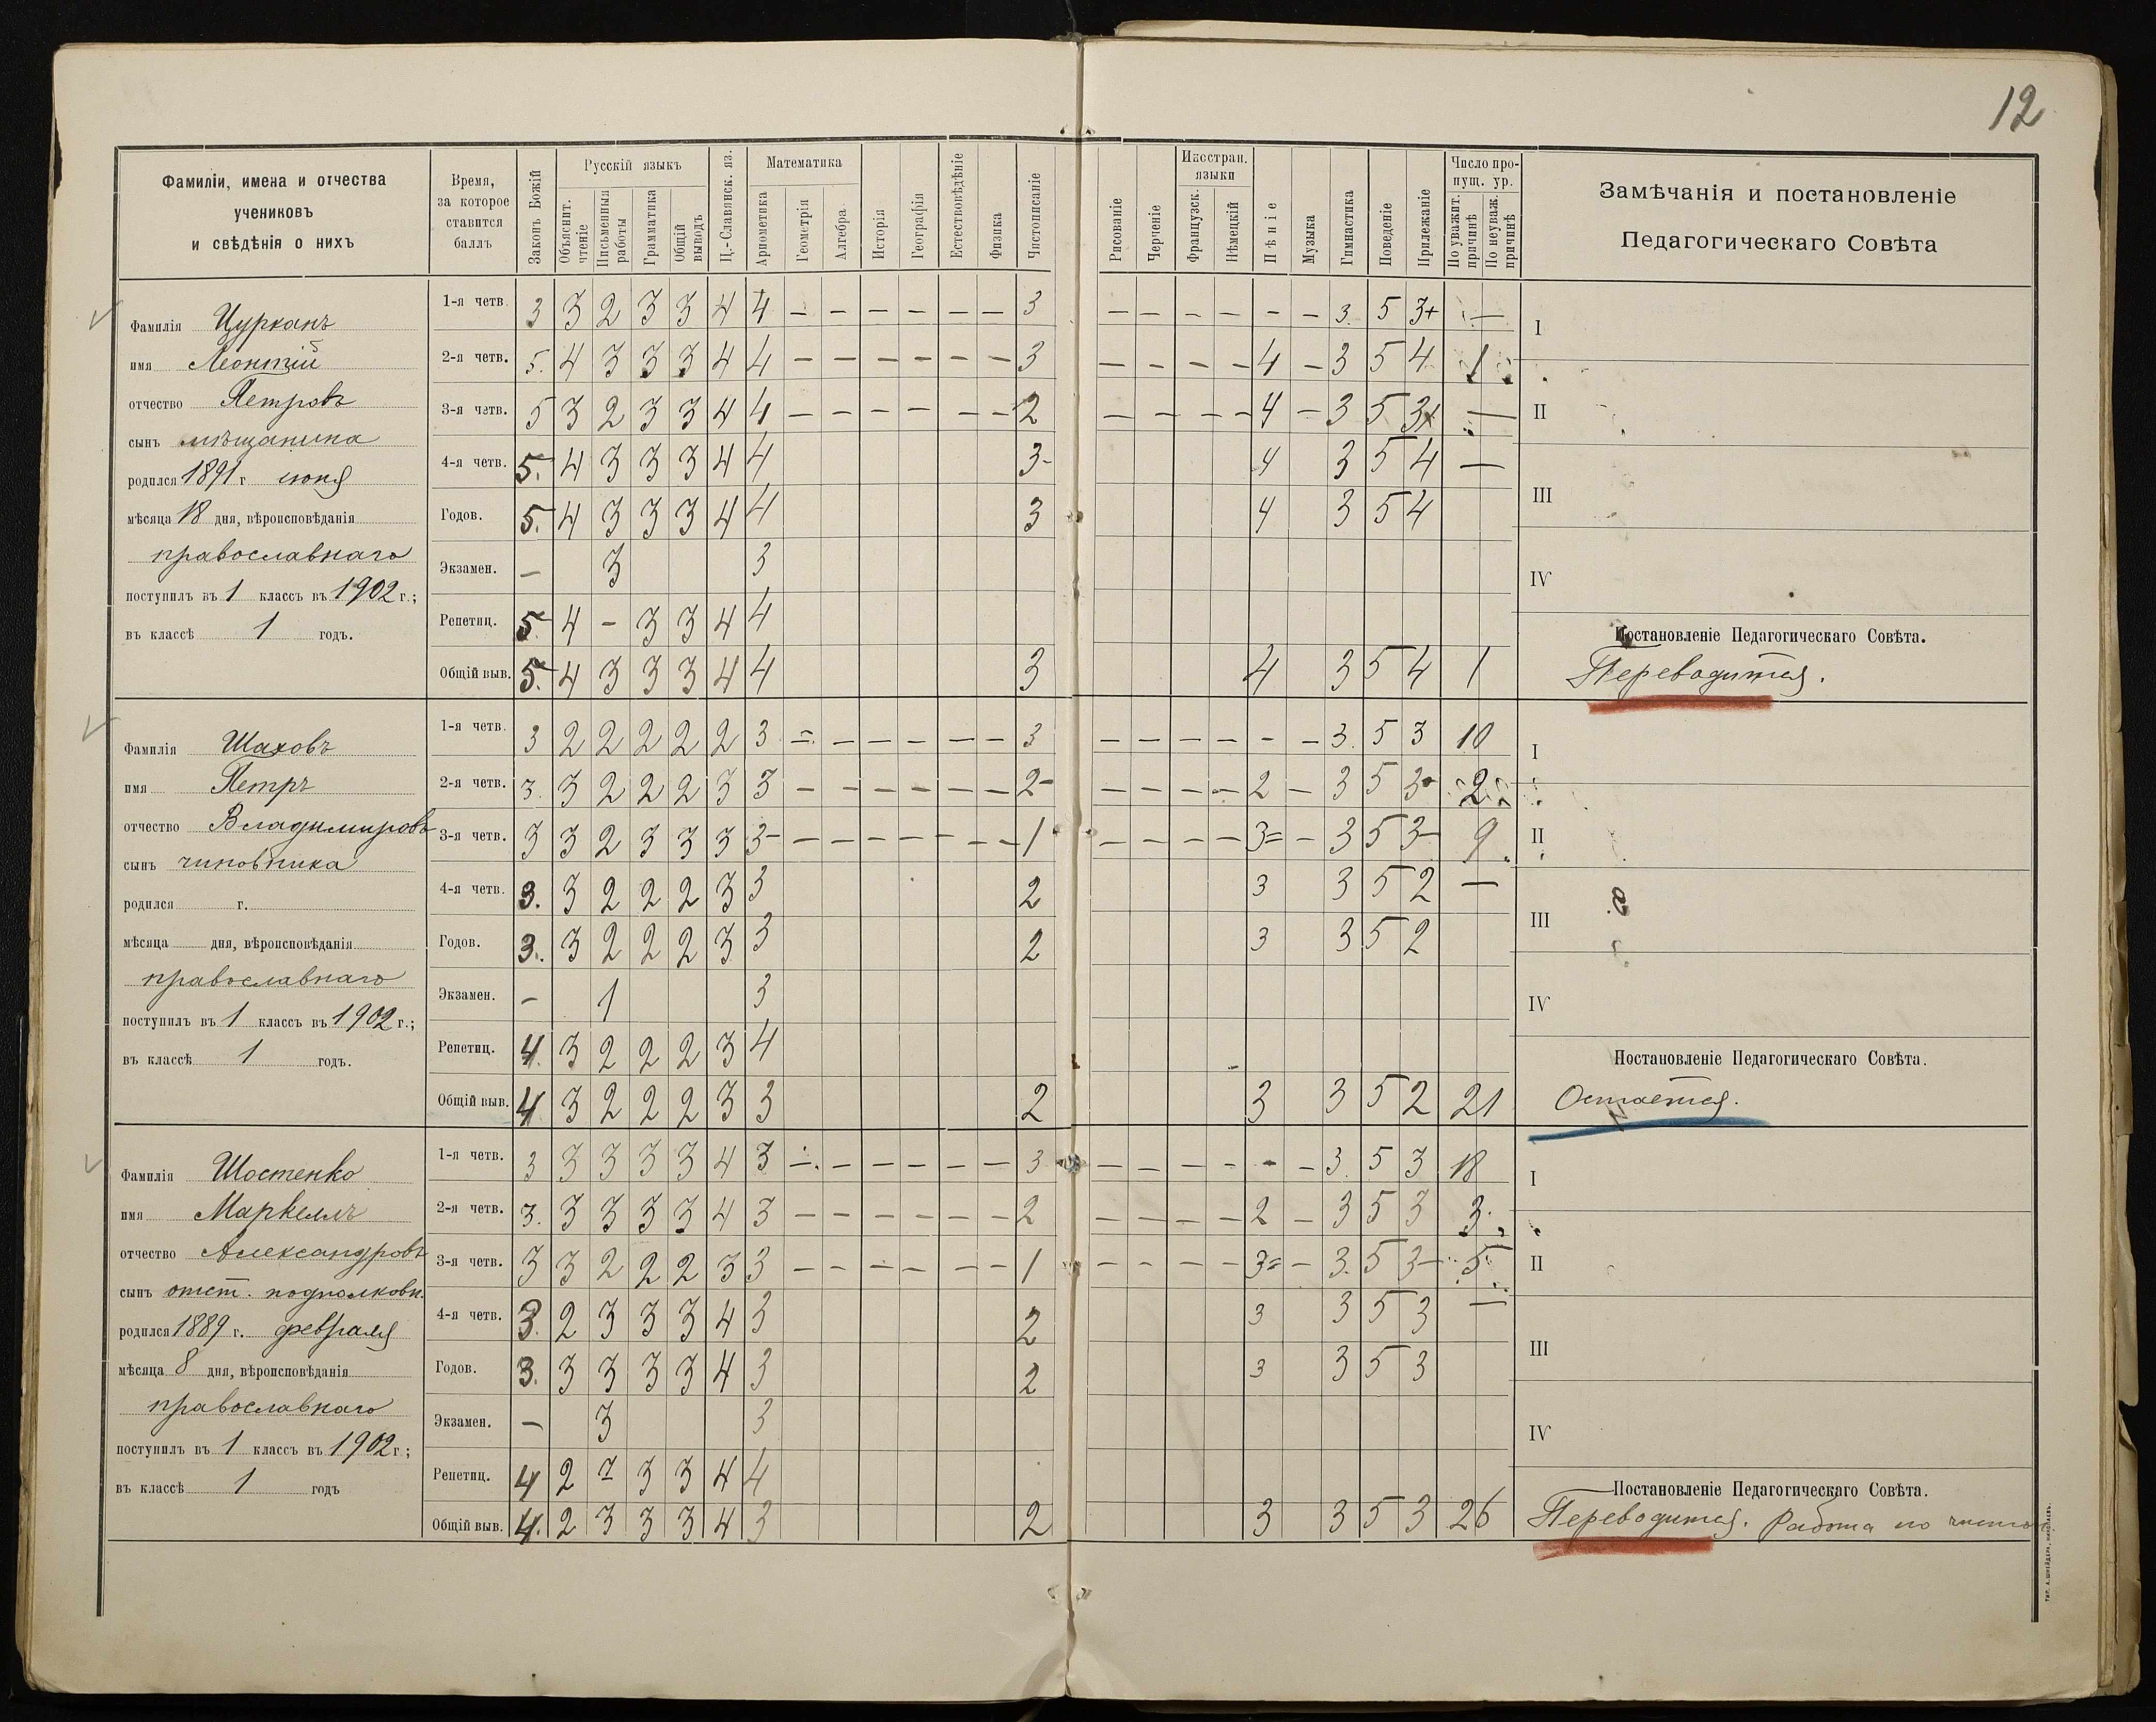 12
Фамиліи, имена и отчества
учениковъ
и свѣдѣнія о нихъ
Время,
за которое
ставится
баллъ
Законъ Божій
Русскій языкъ
Объяснит. чтеніе
Письменныя работы
Грамматика
Общій выводъ
Ц.-Славянск. яз.
Математика
Ариѳметика
Геометрія
Алгебра
Исторія
Географія
Естествовѣдѣніе
Физика
Чистописаніе
Рисованіе
Черченіе
Иностран.
языки
Французск.
Нѣмецкій
Пѣніе
Музыка
Гимнастика
Поведеніе
Прилежаніе
Число про-
пущ. ур.
По уважит. причинѣ
По неуваж. причинѣ
Замѣчанія и постановленіе
Педагогическаго Совѣта
Фамилія Цурканъ
имя Леонтій
отчество Петровъ
сынъ мѣщанина
родился 1891 г. іюня
мѣсяца 18 дня, вѣроисповѣданія
православнаго
поступилъ въ 1 классъ въ 1902 г.;
въ классѣ 1 годъ.
1-я четв. 3 3 2 3 3 4 4 – – – – – – 3 – – – – – – 3. 5 3+ –
2-я четв. 5. 4 3 3 3 4 4 – – – – – – 3 – – – – 4 – 3 5 4 1
3-я четв. 5 3 2 3 3 4 4 – – – – – – 2 – – – – 4 – 3 5 3+ –
4-я четв. 5. 4 3 3 3 4 4 3- 4 3 5 4 –
Годов. 5. 4 3 3 3 4 4 3 4 3 5 4
Экзамен. – 3 3
Репетиц. 5 4 – 3 3 4 4
Общій выв. 5. 4 3 3 3 4 4 3 4 3 5 4 1
I
II
III
IV
Постановленіе Педагогическаго Совѣта.
Переводится.
Фамилія Шаховъ
имя Петръ
отчество Владимировъ
сынъ чиновника
родился г.
мѣсяца дня, вѣроисповѣданія
православнаго
поступилъ въ 1 классъ въ 1902 г.;
въ классѣ 1 годъ.
1-я четв. 3 2 2 2 2 2 3 – – – – – – 3 – – – – – – 3. 5 3 10
2-я четв. 3. 3 2 2 2 3 3 – – – – – – 2- – – – – 2 – 3 5 3- 2
3-я четв. 3 3 2 3 3 3 3- – – – – – – 1 – – – – 3= – 3 5 3- 9
4-я четв. 3. 3 2 2 2 3 3 2 3 3 5 2 –
Годов. 3. 3 2 2 2 3 3 2 3 3 5 2
Экзамен. – 1 3
Репетиц. 4. 3 2 2 2 3 4
Общій выв. 4 3 2 2 2 3 3 2 3 3 5 2 21
I
II
III
IV
Постановленіе Педагогическаго Совѣта.
Остается.
Фамилія Шостенко
имя Маркеллъ
отчество Александровъ
сынъ отст. подполковн.
родился 1889 г. февраля
мѣсяца 8 дня, вѣроисповѣданія
православнаго
поступилъ въ 1 классъ въ 1902 г.;
въ классѣ 1 годъ
1-я четв. 3 3 3 3 3 4 3 – – – – – – 3 – – – – – – 3. 5 3 18
2-я четв. 3. 3 3 3 3 4 3 – – – – – – 2 – – – – 2 – 3 5 3 3
3-я четв. 3 3 2 2 2 3 3 – – – – – – 1 – – – – 3= – 3. 5 3- 5
4-я четв. 3. 2 3 3 3 4 3 2 3 3 5 3 –
Годов. 3. 3 3 3 3 4 3 2 3 3 5 3
Экзамен. – 3 3
Репетиц. 4 2 3 3 4 4
Общій выв. 4. 2 3 3 3 4 3 2 3 3 5 3 26
I
II
III
IV
Постановленіе Педагогическаго Совѣта.
Переводится. Работа по чистоп